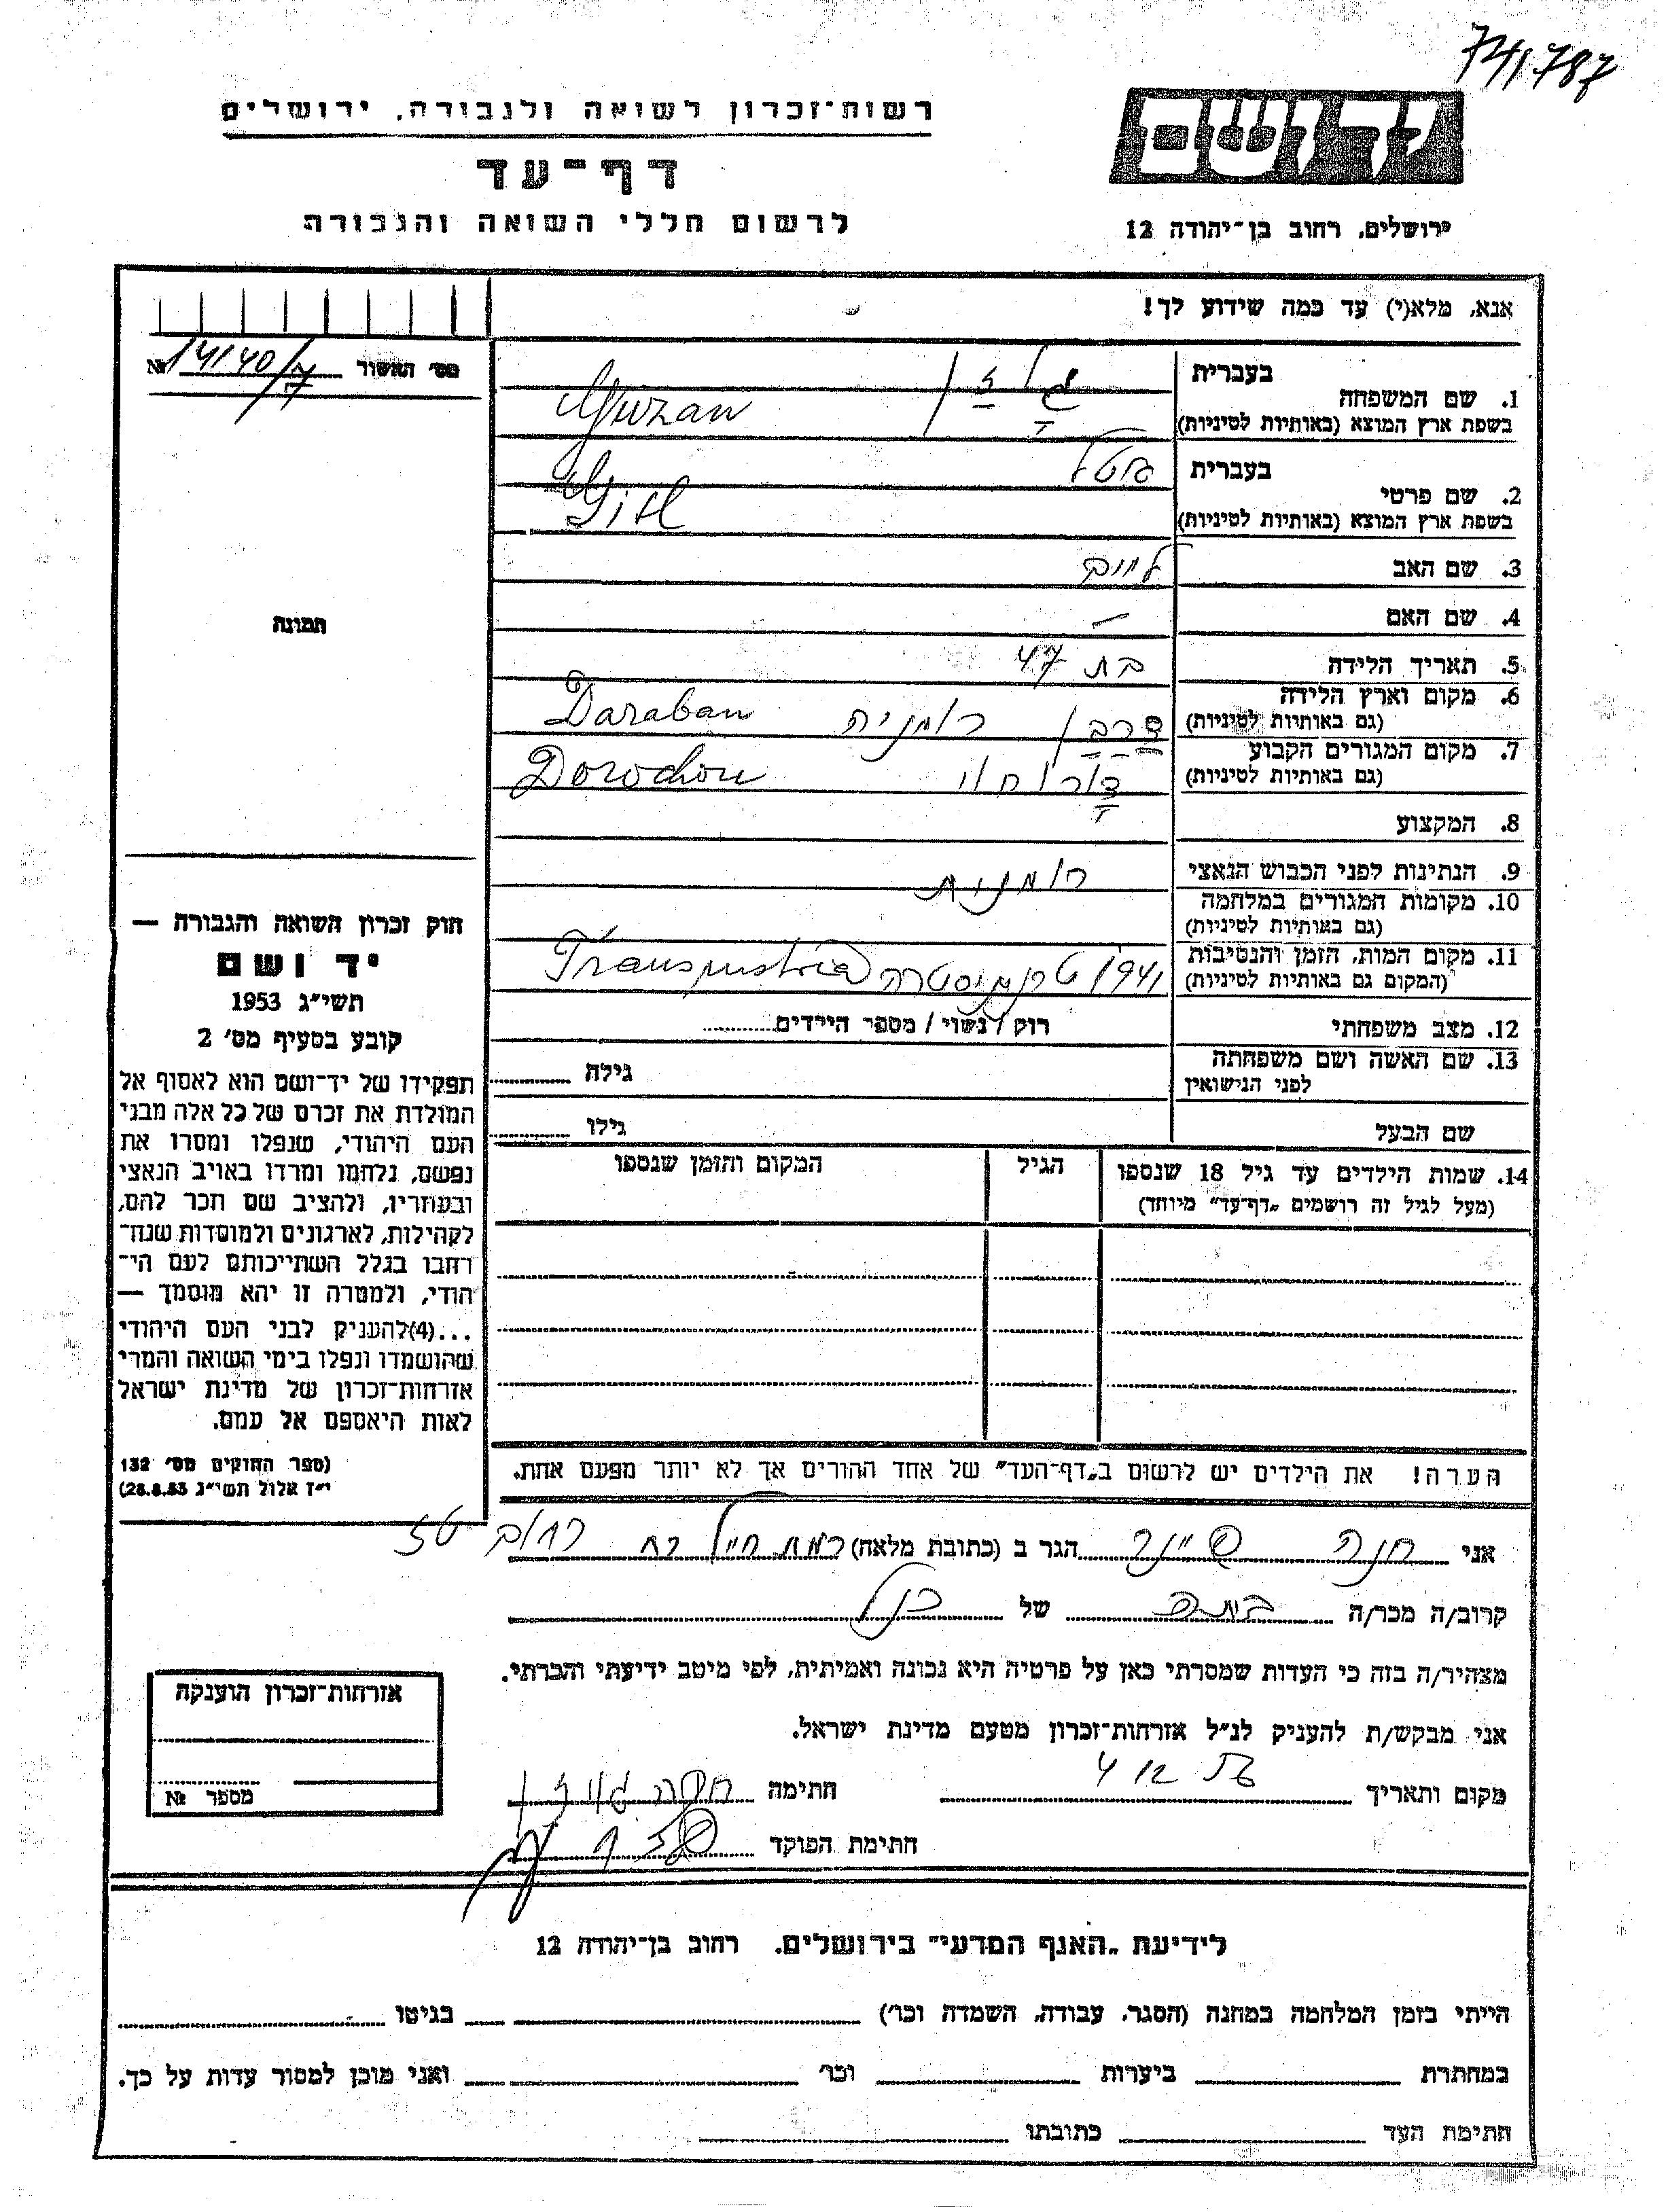 741787
רשות־זכרון לשואה ולגבורה, ירושלים
יד ושם
דף־עד
לרשום חללי השואה והגבורה
ירושלים, רחוב בן־יהודה 12
אנא, מלא(י) עד כמה שידוע לך!
מס׳ האשור № 14140/7
1. שם המשפחה
בעברית
בשפת ארץ המוצא (באותיות לטיניות) Guzan
2. שם פרטי
בעברית גיטל
בשפת ארץ המוצא (באותיות לטיניות) Gitl
3. שם האב חיים
4. שם האם —
5. תאריך הלידה בת 47
6. מקום וארץ הלידה דרבן רומניה Daraban
(גם באותיות לטיניות)
7. מקום המגורים הקבוע דורוחוי Dorochou
(גם באותיות לטיניות)
8. המקצוע
9. הנתינות לפני הכבוש הנאצי רומנית
10. מקומות המגורים במלחמה
(גם באותיות לטיניות)
11. מקום המות, הזמן והנסיבות 1941 טרנסניסטריה Transnistria
(המקום גם באותיות לטיניות)
12. מצב משפחתי רווק / נשוי / מספר הילדים
13. שם האשה ושם משפחתה גילה
לפני הנישואין
שם הבעל גילו
14. שמות הילדים עד גיל 18 שנספו הגיל המקום והזמן שנספו
(מעל לגיל זה רושמים „דף־עד״ מיוחד)
הערה! את הילדים יש לרשום ב„דף־העד״ של אחד ההורים אך לא יותר מפעם אחת.
תמונה
חוק זכרון השואה והגבורה —
יד ושם
תשי״ג 1953
קובע בסעיף מס׳ 2
תפקידו של יד־ושם הוא לאסוף אל
המולדת את זכרם של כל אלה מבני
העם היהודי, שנפלו ומסרו את
נפשם, נלחמו ומרדו באויב הנאצי
ובעוזריו, ולהציב שם וזכר להם,
לקהילות, לארגונים ולמוסדות שנח־
רבו בגלל השתייכותם לעם הי־
הודי, ולמטרה זו יהא מוסמך —
...(4)להעניק לבני העם היהודי
שהושמדו ונפלו בימי השואה והמרי
אזרחות־זכרון של מדינת ישראל
לאות היאספם אל עמם.
(ספר החוקים מס׳ 132
י״ז אלול תשי״ג 28.8.53)
אני חנה הגר ב (כתובת מלאה) רמת חייל רח
קרוב/ה מכר/ה בתה של כנ״ל
מצהיר/ה בזה כי העדות שמסרתי כאן על פרטיה היא נכונה ואמיתית, לפי מיטב ידיעתי והכרתי.
אני מבקש/ת להעניק לנ״ל אזרחות־זכרון מטעם מדינת ישראל.
מקום ותאריך חתימה
חתימת הפוקד
אזרחות־זכרון הוענקה
מספר №
לידיעת „האגף המדעי״ בירושלים, רחוב בן־יהודה 12
הייתי בזמן המלחמה במחנה (הסגר, עבודה, השמדה וכו׳) בגיטו
במחתרת ביערות וכו׳ ואני מוכן למסור עדות על כך.
חתימת העד כתובתו